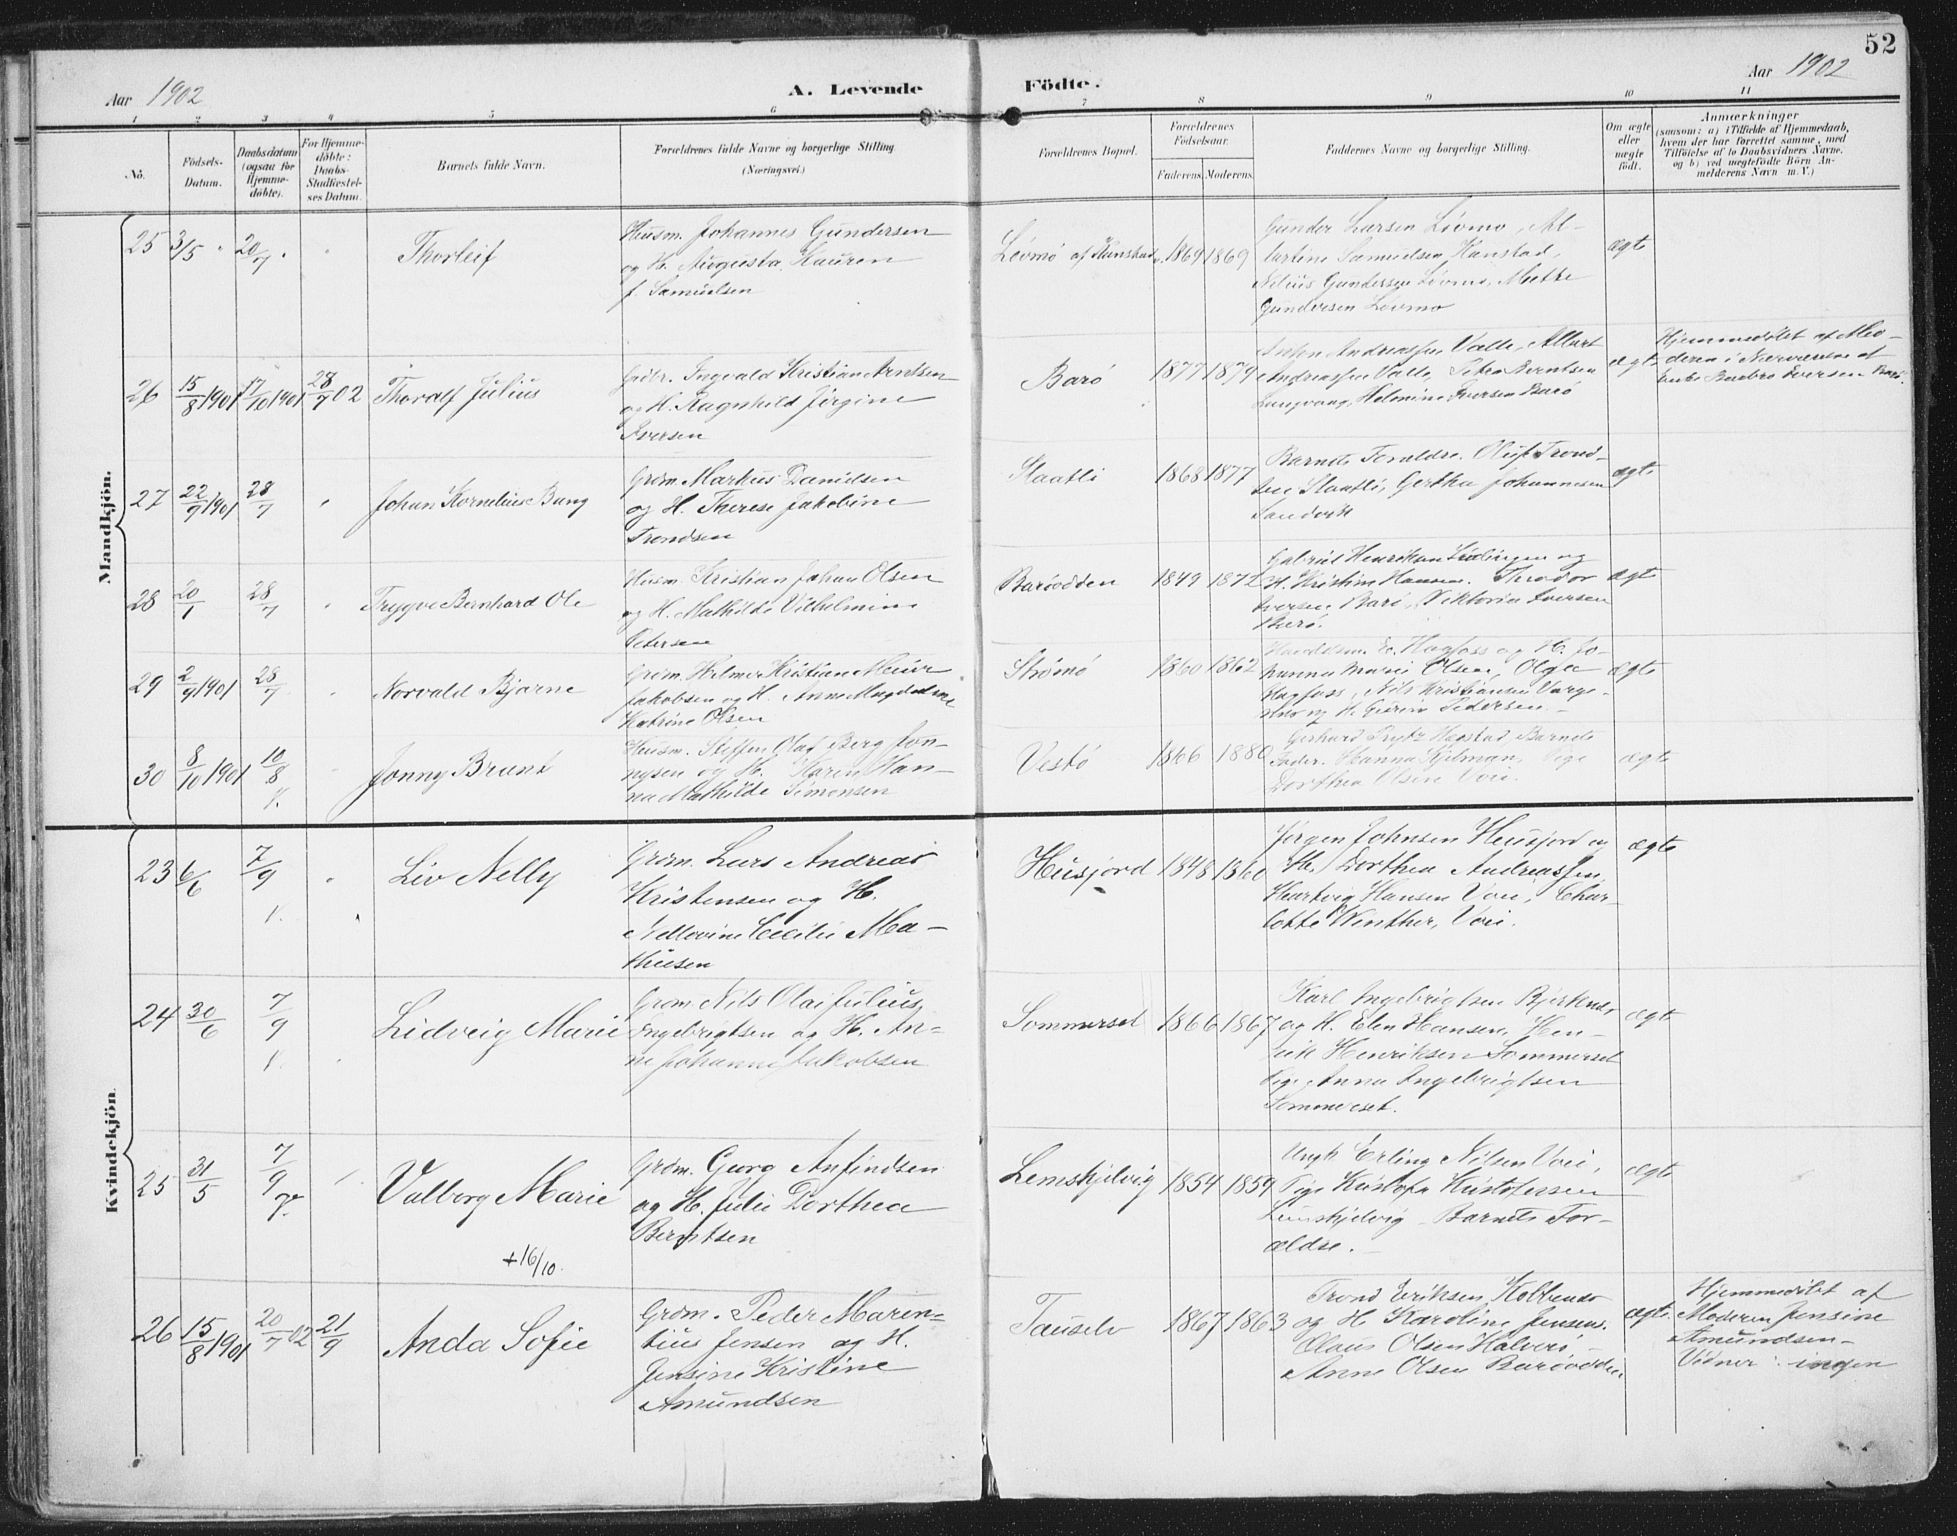 52
Aar 1902
A. Levende
Födte.
Aar 1902
1 2 3 4 5 6 7 8 9 10 11
No.
Födsels-
Datum.
Daabsdatum
(ogsaa for
Hjemme-
döbte).
For Hjemme-
döbte:
Daabs-
Stadfæstel-
ses Datum.
Barnets fulde Navn.
Forældrenes fulde Navne og borgerlige Stilling
(Næringsvei.)
Forældrenes Bopæl.
Forældrenes
Födselsaar.
Faderens. Moderens.
Faddernes Navne og borgerlige Stilling.
Om ægte
eller
uægte
födt.
Anmærkninger
(saasom: a) i Tilfælde af Hjemmedaab,
hvem der har forrettet samme, med
Tilföielse af to Daabsvidners Navne,
og b) ved uægtefödte Börn An-
melderens Navn m. V.)
Mandkjön.
25 3/5 20/7 Thorleif
Husm. Johannes Gundersen
og H. Augusta Kauren
f. Samuelsen
Løvmø af Hunstad. 1869 1869
Gunder Larsen Løvmo,
Martine Samuelsen Hunstad,
Nelius Gundersen Løvmo, Mette
Gundersen Løvmo
ægte
26 15/8 1901 17/10 1901 28/7 02 Thoralf Julius
Gaabr. Ingvald Kristian Arntsen
og H. Ragnhild Jørgine
Iversen
Barø 1877 1879
Anton Andreassen Valle, Albert
Andreassen Valle, Petra Berntsen
Langvang, Helmine Iversen Barø
ægte
Hjemmedøbt af Mo-
deren i Nærværelse af
Enke Barbro Iversen Barø.
27 22/9 1901 28/7 Johan Kornelius Bang
Grdm. Markus Danielsen
og H. Therese Jakobine
Trondsen
Slaatli 1868 1877
Barnets Forældre. Oluf Trond-
sen Slaatli, Gertha Johannesen
Sandvik
ægte
28 20/1 28/7 Trygve Bernhard Ole
Husm. Kristian Johan Olsen
og H. Mathilde Vilhelmine
Petersen
Barøodden 1849 1872
Gabriel Henriksen Lødingen og
H. Kristine Hansen. Theodor
Iversen Barø, Viktoria Iversen
Barø.
ægte
29 2/9 1901 28/7 Norvald Bjarne
Grdm. Hilmar Kristian Meier
Jakobsen og H. Anne Magdalene
Katrine Olsen
Strømø 1860 1862
Hagfoss og H. Jo-
hanna Marie Olsen, Olga
Hagfoss, Nils Kristiansen
og H. Gurine Pedersen.
ægte
30 8/10 1901 10/8 K. Jonny Brant
Husm. Steffen Olaf Berg Jon-
nysen og H. Karen Han-
na Mathilde Simonsen
Vestø 1866 1880
Gerhard Hagstad Barnets
Fader. Hanna Pige
Dorthea Olsen Voie.
ægte
Kvindekjön
23 6/6 7/9 K. Liv Nelly
Grdm. Lars Andreas
Kristensen og H.
Nellovine Cecilie Ma-
thisen
Husjord 1848 1860
Jørgen Johnsen Husjord og
H. Dorthea Andreassen,
Hartvig Hansen Voie, Char-
lotte Winther, Voie.
ægte
24 30/6 7/9 K. Lidveig Marie
Grdm. Nils Olai Julius
Ingebrigtsen og H. An-
ne Johanne Jakobsen
Sommerset 1866 1867
Karl Ingebrigtsen Bjerknes
og H. Elen Hansen, Hen-
rik Henriksen Sommerset
Pige Anna Ingebrigtsen
Sommerset.
ægte
25 31/5 7/9 Valborg Marie
+16/10.
Grdm. Georg Anfindsen
og H. Julie Dorthea
Berntsen
Lemskjelvig 1854 1859
Ungk. Erling Nilsen Voie,
Pige Kristofa Kristofersen
Lemskjelvig Barnets For-
ældre.
ægte
26 15/8 1901 20/7 02 21/9 Anda Sofie
Grdm. Peder Maren-
tius Jensen og H.
Jensine Kristine
Amundsen
Tauselv 1867 1863
Trond Eriksen
og H Karoline Jensen.
Claus Olsen Halvarø
Anne Olsen Barøodden
ægte
Hjemmedøbt af
Moderen Jensine
Amundsen
Vidner: ingen